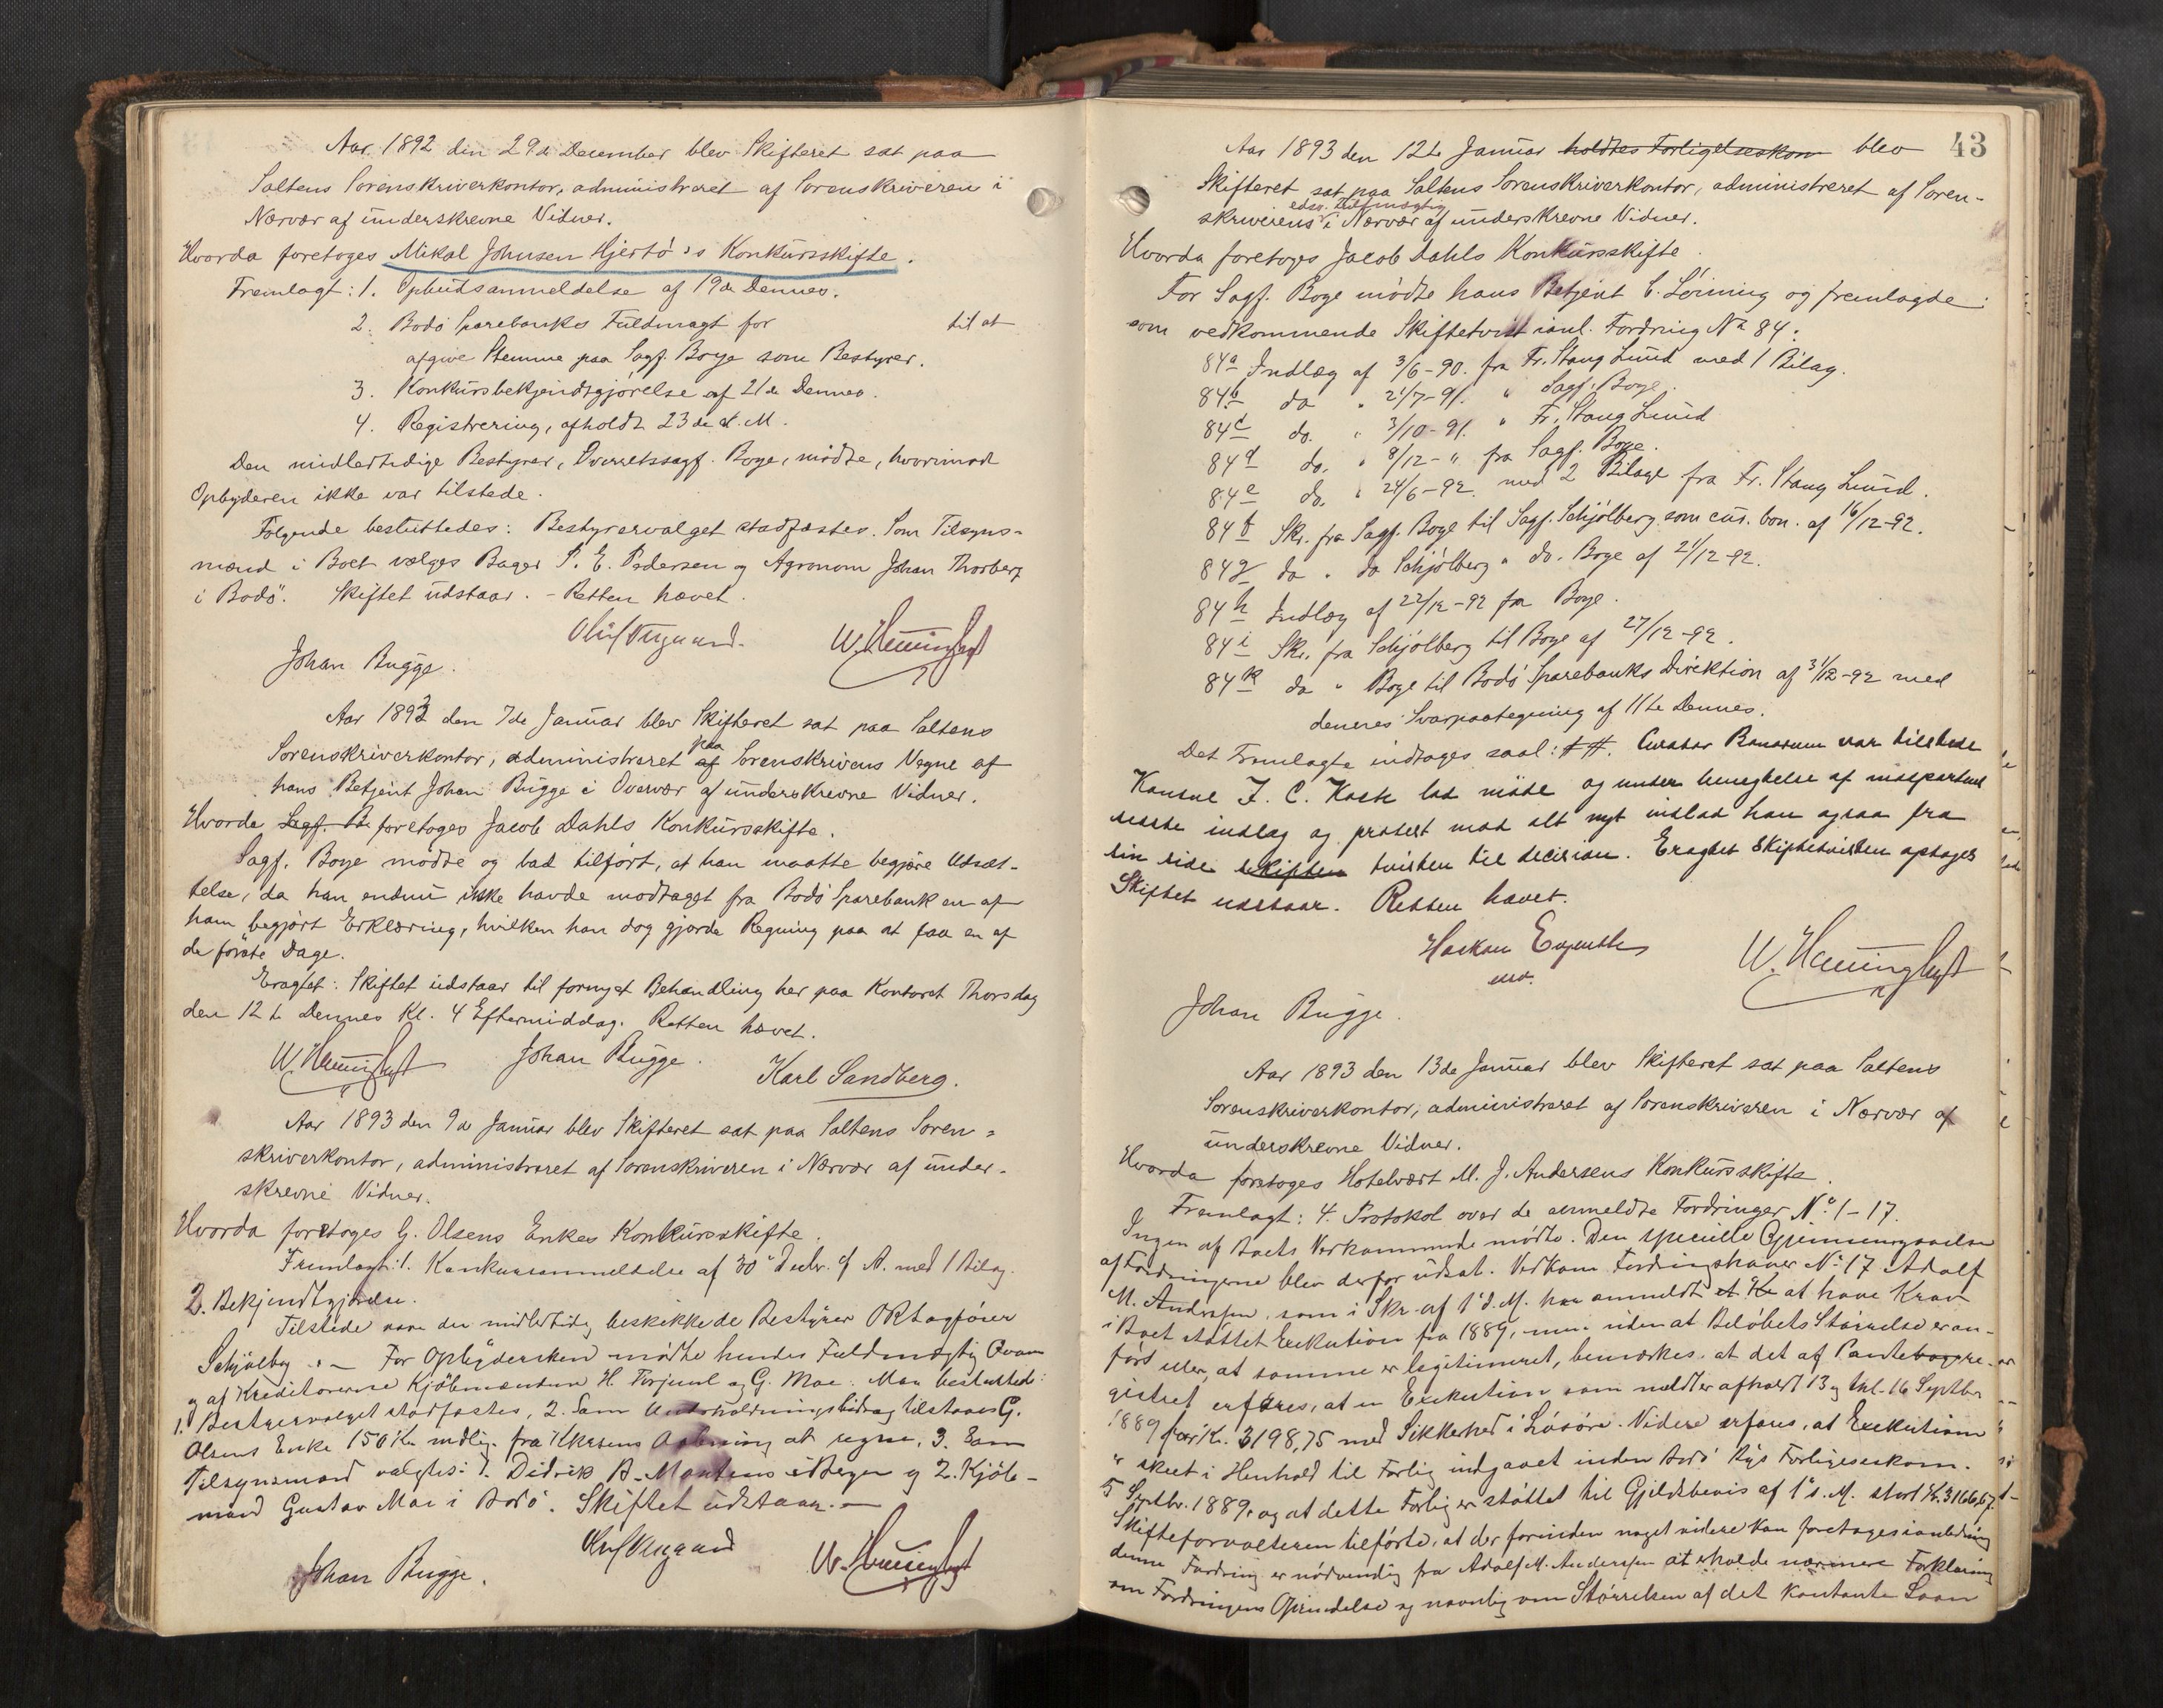 Aar 1892 den 29de December blev Skifteret sat paa
Saltens Sorenskriverkontor, administreret af Sorenskriveren i
Nærvær af underskrevne Vidner.
Hvorda foretoges Mikal Johnsen Hjertö's Konkursskifte.
Fremlagt: 1. Opbudsanmeldelse af 19de Dennes.
2. Bodö Sparebanks Fuldmagt for til at
afgive Stemme paa Sagf. Boye som Bestyrer.
3. Konkursbekjendtgjörelse af 21de Dennes.
4. Registrering, afholdt 23de d. M.
Den midlertidige Bestyrer, Overretssagf. Boye, mödte, hvorimod
Opbyderen ikke var tilstede.
Fölgende besluttedes: Bestyrervalget stadfæstes. Som Tilsyns-
mænd i Boet vælges Bager P. E. Pedersen og Agronom Johan Thorberg
i Bodö. Skiftet udstaar. - Retten hævet.
Johan Bugge.
Aar 1893 den 7de Januar blev Skifteret sat paa Saltens
Sorenskriverkontor, administreret af paa Sorenskrivens Vegne af
hans Betjent Johan Bugge i Overvær af underskrevne Vidner.
Hvorda Sagf. Bo foretoges Jacob Dahls Konkursskifte.
Sagf. Boye mödte og bad tilfört, at han maatte begjære Udsæt-
telse, da han endnu ikke havde modtaget fra Bodö Sparebank en af
ham begjært Erklæring, hvilken han dog gjorde Regning paa at faa en af
de förste Dage.
Eragtet: Skiftet udstaar til fornyet Behandling her paa Kontoret Thorsdag
den 12te Dennes Kl. 4 Eftermiddag. Retten hævet.
Johan Bugge. Karl Sandberg.
Aar 1893 den 9de Januar blev Skifteret sat paa Saltens Soren-
skriverkontor, administreret af Sorenskriveren i Nærvær af under-
skrevne Vidner.
Hvorda foretoges G. Olsens Enkes Konkursskifte.
Fremlagt: 1. Konkursanmeldelse af 30 Decbr. f. A. med 1 Bilag.
2. Bekjendtgjörelse.
Tilstede var den midlertidig beskikkede Bestyrer ORSagförer
Schjölberg. - For Opbydersken mödte hendes Fuldmægtig
og af Kreditorerne Kjöbmændene H. og G. Moe. Man besluttede:
1. Bestyrervalget stadfæstes, 2. Som Underholdningsbidrag tilstaaes G.
Olsens Enke 150 Kr. mdlig. fra Konkursens Aabning at regne, 3. Som
Tilsynsmænd valgtes: 1. Didrik A. Martens i Bergen og 2. Kjöb-
mand Gustav Moe i Bodö. Skiftet udstaar. -
Johan Bugge.
43
Aar 1893 den 12te Januar holdtes Forligelseskom blev
Skifteret sat paa Saltens Sorenskriverkontor, administreret af Soren-
skriverens edsv. Fuldmægtig i Nærvær af underskrevne Vidner.
Hvorda foretoges Jacob Dahls Konkursskifte.
For Sagf. Boye mödte hans Betjent C. Lönning og fremlagde:
som vedkommende Skiftetvist ianl. Fordring No 84:
84a Indlæg af 3/6-90. fra Fr. Stang Lund med 1 Bilag.
84b do " 21/7-91. " Sagf. Boye.
84c do. " 3/10-91. " Fr. Stang Lund
84d do. " 8/12-" fra Sagf. Boye.
84e do. " 24/6-92. med 2 Bilage fra Fr. Stang Lund.
84f Skr. fra Sagf. Boye til Sagf. Schjölberg som cur. bon. af 16/12-92.
84g do " do Schjölberg " do. Boye af 21/12-92.
84h Indlæg af 22/12-92 fra Boye.
84i Skr. fra Schjölberg til Boye af 27/12-92.
84k do " Boye til Bodö Sparebanks Direktion af 31/12-92 med
dennes Svarpaategning af 11te Dennes.
Det Fremlagte indtages saal: ##. Curator Bonorum var tilstede
Konsul J. C. Koch lod möde og under benegtelse af modpartens
sidste indlæg og protest mod alt nyt indlod han ogsaa fra
sin side skiften tvisten til decision. Eragtet Skiftetvisten optages
Skiftet udstaar. Retten hævet.
Johan Bugge.
Aar 1893 den 13de Januar blev Skifteret sat paa Saltens
Sorenskriverkontor, administreret af Sorenskriveren i Nærvær af
underskrevne Vidner.
Hvorda foretoges Hotelvært M. J. Andersens Konkursskifte.
Fremlagt: 4. Protokol over de anmeldte Fordringer No 1-17.
Ingen af Boets Vedkommende mödte. Den specielle Gjennemgaaelse
af Fordringerne blev derfor udsat. Vedkom. Fordringshaver No 17 Adolf
M. Andersen, som i Skr. af 1 d. M. har anmeldt et Kr at have Krav
i Boet støttet Exekution fra 1889, men uden at Belöbets Störrelse er an-
fört eller, at samme er legitimeret, bemærkes, at det af Pantebogre-
gistret erfares, at en Exekution som meldt er afholdt 13 og tgl. 16 Septbr
1889 for Kr. 3198,75 med Sikkerhed i Lösöre. Videre erfares, at Exekutionen
er skeet i Henhold til Forlig indgaaet inden Bodö Bys Forligelseskom.
5 Septbr. 1889, og at dette Forlig er støttet til Gjeldsbevis af 1 s. M. stort Kr. 3166,67.
Skifteforvalteren tilförte, at der forinden noget videre kan foretages i anledning
denne Fordring er nödvendig fra Adolf M. Andersen at erholde nærmere Forklaring
om Fordringens Oprindelse og navnlig om Störrelsen af det kontante Laan